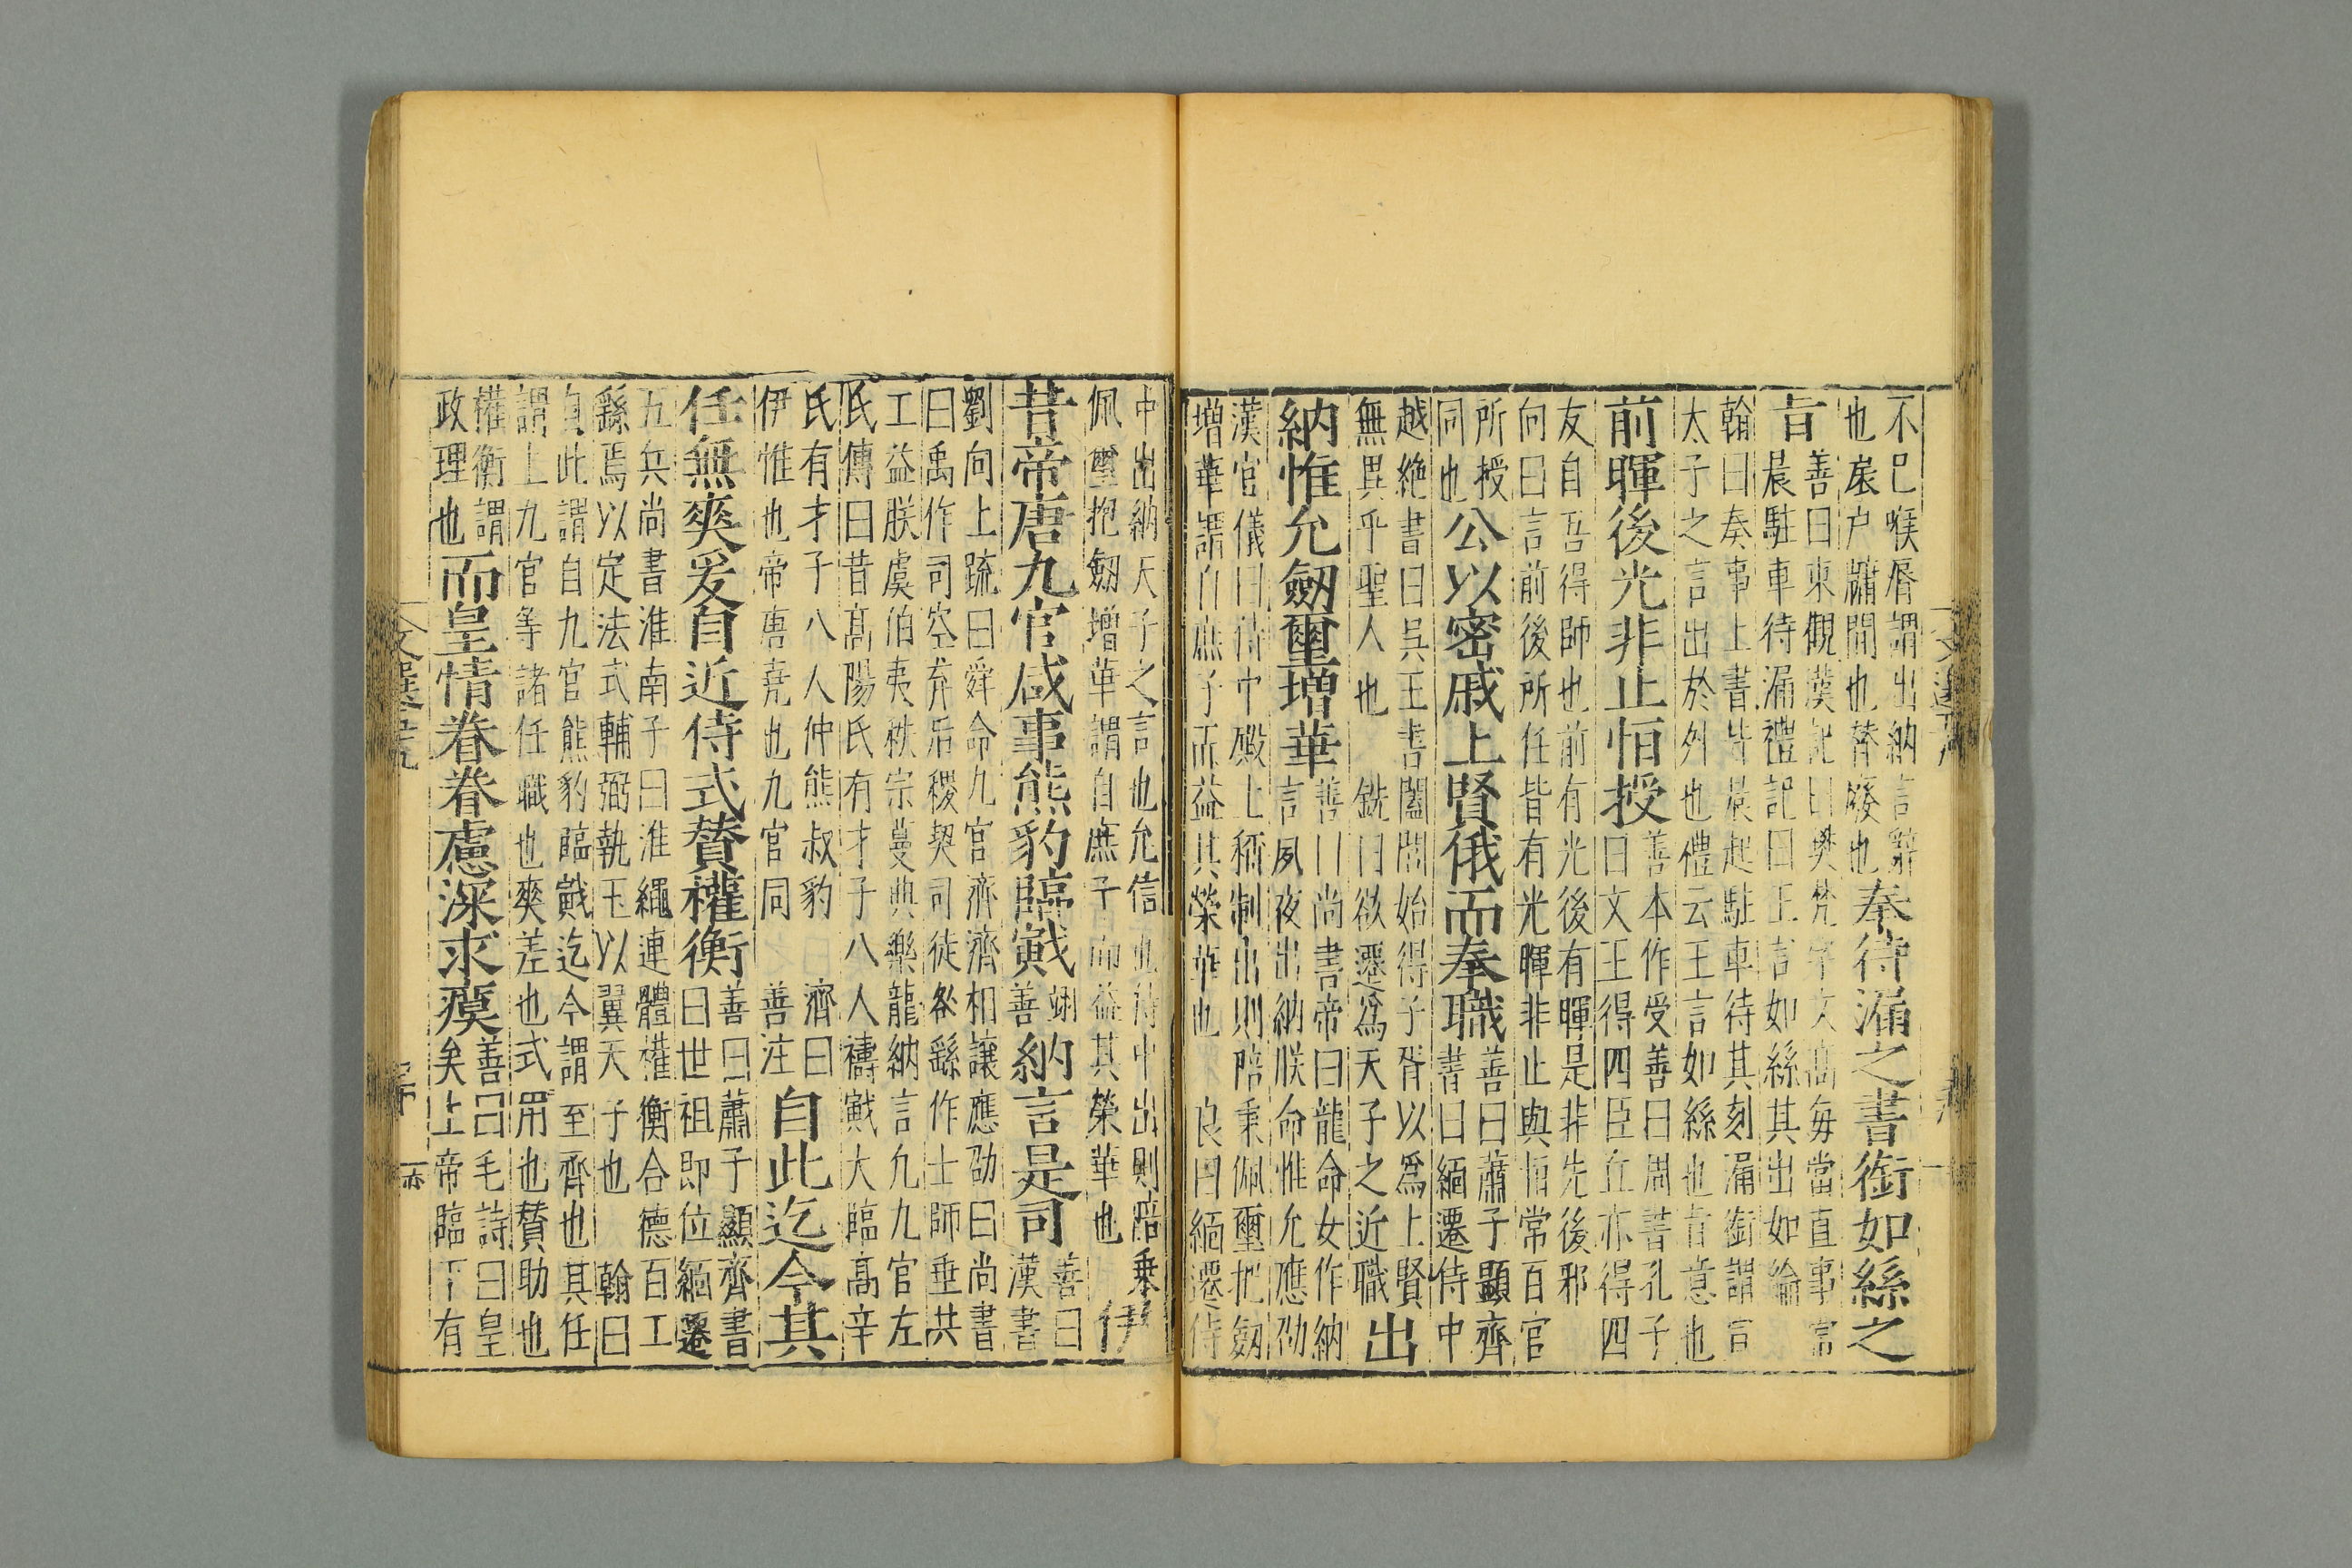 不已喉脣謂出納言辭
也扆戶牖間也替廢也
奉待漏之書銜如絲之
旨
善曰東觀漢記曰樊梵字文高每當直事常
晨駐車待漏禮記曰王言如絲其出如綸
翰曰奏事上書皆晨起駐車待其刻漏銜謂言
太子之言出於外也禮云王言如絲也旨意也
前暉後光非止恒授
善本作受善曰周書孔子
曰文王得四臣丘亦得四
友自吾得師也前有光後有暉是非先後邪
向曰言前後所任皆有光暉非止與恒常百官
所授
同也
公以密戚上賢俄而奉職
善曰蕭子顯齊
書曰緬遷侍中
越絶書曰吳王書闔閭始得子胥以爲上賢
無異乎聖人也 銑曰欲遷爲天子之近職
出
納惟允劒璽增華
善曰尚書帝曰龍命女作納
言夙夜出納朕命惟允應劭
漢官儀曰侍中殿上稱制出則陪乗佩璽把劒
增華謂自庶子而益其榮華也 良曰緬遷侍
中出納天子之言也允信也侍中出則陪乗
佩璽抱劒增華謂自庶子而益其榮華也
伊
昔帝唐九官咸事熊豹臨戭
翊
善
納言是司
善曰
漢書
劉向上疏曰舜命九官齊濟相讓應劭曰尚書
曰禹作司空弃后稷契司徒咎繇作士師垂共
工益朕虞伯夷秩宗蘷典樂龍納言凢九官左
氏傳曰昔高陽氏有才子八人檮戭大臨高辛
氏有才子八人仲熊叔豹 濟曰
伊惟也帝唐堯也九官同 善注
自此迄今其
任無爽爰自近侍式贊權衡
善曰蕭子顯齊書
曰世祖即位緬遷
五兵尚書淮南子曰准繩連體權衡合德百工
繇焉以定法式輔弼執玉以翼天子也 翰曰
自此謂自九官熊豹臨戭迄今謂至齊也其任
謂上九官等諸任職也爽差也式用也贊助也
權衡謂
政理也
而皇情眷眷慮深求瘼
善曰毛詩曰皇
矣上帝臨下有